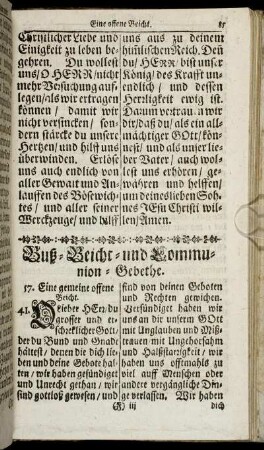 Eine offene Beicht. 85
Christlicher Liebe und
Einigkeit zu leben be-
gehren. Du wollest
uns/O HERR/nicht
mehr Versuchung auf-
legen/als wir ertragen
können / damit wir
nicht versincken/ son-
dern stärcke du unser
Hertzen/ und hilff uns
überwinden. Erlöse
uns auch endlich von
aller Gewalt und An-
lauffen des Bösewich-
tes / und aller seiner
Werckzeuge/ und hilff
uns aus zu deinem
himlischen Reich. Deñ
du/ HERR/ bist unser
König/ des Krafft un-
endlich / und dessen
Herzligkeit ewig ist.
Darum vertrauen wir
dir/daß du/als ein all-
mächtiger GOtt/kön-
nest/ und als unser lie-
ber Vater/ auch wol-
lest uns erhören/ ge-
währen und helffen/
um deines lieben Soh-
nes JEsu Christi wil-
len/Amen.
Buß-Beicht-und Commu-
nion-Gebethe.
57. Eine gemeine offene
Beicht.
41. Lieber HErr/du
grosser und er-
schrecklicher Gott/
der du Bund und Gnade
hältest / denen die dich lie-
ben und deine Gebote hal-
ten / wir haben gesündiget
und Unrecht gethan / wir
sind gottloß gewesen / und
sind von deinen Geboten
und Rechten gewichen.
Versündiget haben wir
uns an dir unserm GOtt
mit Unglauben und Miß-
trauen mit Ungehorsahm
und Halßstarrigkeit / wir
haben uns offtmahls zu
viel auff Menschen oder
andere vergängliche Din-
ge verlassen. Wir haben
iij dich